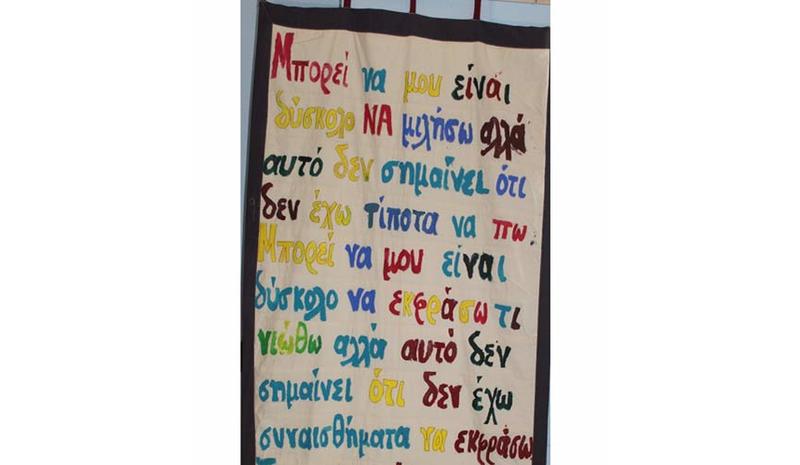 Μπορεί να μου είναι
δύσκολο ΝΑ μιλήσω αλλά
αυτό δεν σημαίνει ότι
δεν έχω τίποτα να πω.
Μπορεί να μου είναι
δύσκολο να εκφράσω τι
νιώθω αλλά αυτό δεν
σημαίνει ότι δεν έχω
συναισθήματα να εκφράσω